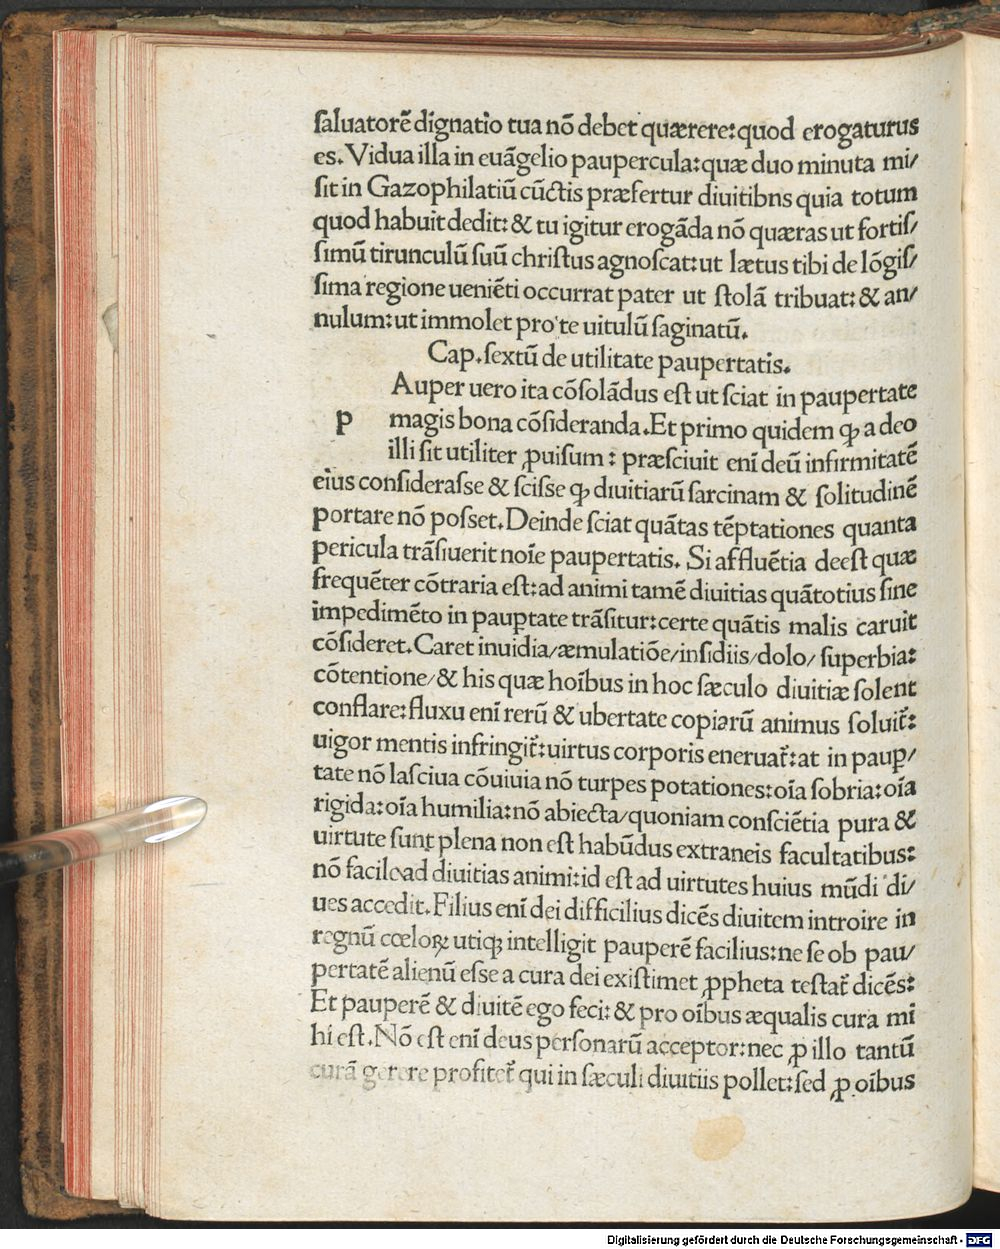 ſaluatorē dignatio tua nō debet quærere: quod erogaturus
es. Vidua illa in euāgelio paupercula: quæ duo minuta mi/
ſit in Gazophilatiū cūctis præfertur diuitibns quia totum
quod habuit dedit: & tu igitur erogāda nō quæras ut fortiſ/
ſimū tirunculū ſuū chriſtus agnoſcat: ut lætus tibi de lōgiſ/
ſima regione ueniēti occurrat pater ut ſtolā tribuat: & an/
nulum: ut immolet pro te uitulū ſaginatū.
Cap. ſextū de utilitate paupertatis.
Auper uero ita cōſolādus eſt ut ſciat in paupertate
p magis bona cōſideranda. Et primo quidem ꝙ a deo
illi ſit utiliter ꝓuiſum: præſciuit enī deū infirmitatē
eius conſideraſſe & ſciſſe ꝙ diuitiarū ſarcinam & ſolitudinē
portare nō poſſet. Deinde ſciat quātas tēptationes quanta
pericula trāſiuerit noīe paupertatis. Si affluētia deeſt quæ
frequēter cōtraria eſt: ad animi tamē diuitias quātotius ſine
impedimēto in pauꝑtate trāſitur: certe quātis malis caruit
cōſideret. Caret inuidia/æmulatiōe/inſidiis/dolo/ ſuperbia:
cōtentione/& his quæ hoībus in hoc ſæculo diuitiæ ſolent
conflare: fluxu enī rerū & ubertate copiarū animus ſoluit̄:
uigor mentis infringit̄: uirtus corporis eneruat̄: at in pauꝑ/
tate nō laſciua cōuiuia nō turpes potationes: oīa ſobria: oīa
rigida: oīa humilia: nō abiecta/quoniam conſciētia pura &
uirtute ſunt plena non eſt habūdus extraneis facultatibus:
nō facile ad diuitias animi: id eſt ad uirtutes huius mūdi di/
ues accedit. Filius enī dei difficilius dicēs diuitem introire in
regnū cœloꝝ utiꝗ intelligit pauperē facilius: ne ſe ob pau/
pertatē alienū eſſe a cura dei exiſtimet ꝓpheta teſtat̄ dicēs:
Et pauperē & diuitē ego feci: & pro oībus æqualis cura mi
hi eſt. Nō eſt enī deus perſonarū acceptor: nec ꝓ illo tantū
curā gerere profitet̄ qui in ſæculi diuitiis pollet: ſed ꝓ oībus
Digitalisierung gefördert durch die Deutsche Forschungsgemeinschaft - DFG